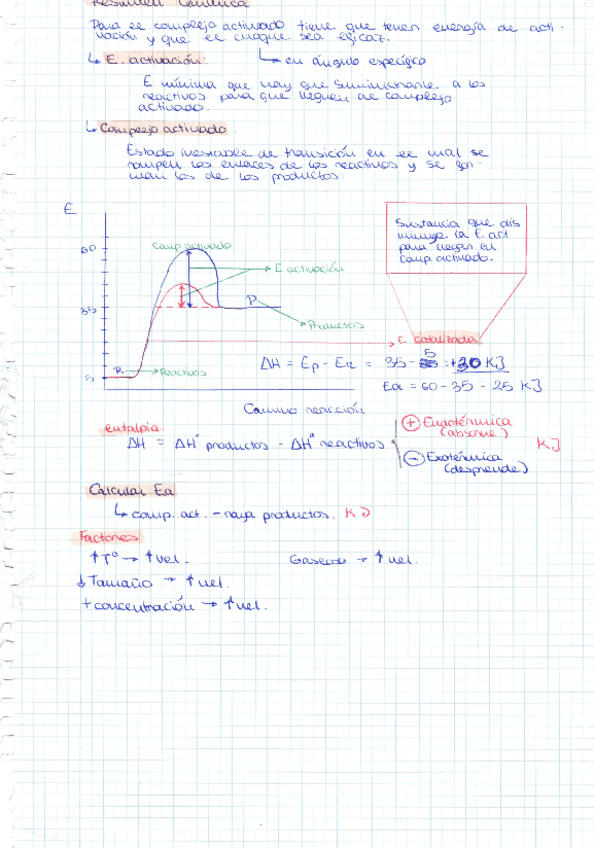 Resumen Química
Para el complejo activado tiene que tener energía de acti-
vación y que el choque sea eficaz.
↳ E. activación:
↳ en ángulo específico
E mínima que hay que suministrarle a los
reactivos para que lleguen al complejo
activado.
↳ Complejo activado
Estado inestable de transición en el cual se
rompen los enlaces de los reactivos y se for-
man los de los productos.
E
60
35
Comp. activado
E activación
P.
Productos
R.
Reactivos
Camino reacción
Sustancia que dis
minuye la E. act
para llegar al
comp. activado.
E. catalizada
ΔH = Ep - ER = 35 - 5 = +30 KJ
Ea = 60 - 35 - 25 KJ
entalpia
ΔH = ΔH° productos - ΔH° reactivos
+ Endotérmica
(absorve)
- Exotérmica
(desprende)
KJ
Calcular Ea
↳ comp. act. - raya productos. KJ
Factores
↑T° → ↑vel.
Gaseoso → ↑vel.
↓Tamaño → ↑vel.
+concentración → ↑vel.